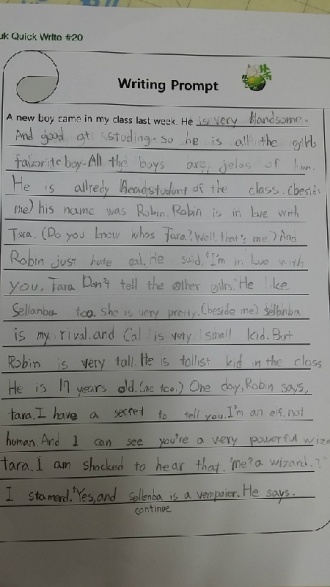 uk Quick Write #20
Writing Prompt
A new boy came in my class last week. He is very Handsome.
And good at studing. so he is all the girls
faizorite boy. All the boys are jelos of him.
He is allredy Headstudent of the class. (besid
me) his name was Robin. Robin is in luve with
Tara. (Do you know whos Tara? Well, that's me.) And
Robin just hate Cal. He said. "I'm in luve with
you, Tara Don't tell the other girls. He like
Sellenba too. she is very pretty. (beside me) sellenba
is my rival. and Cal is very small kid. But
Robin is very tall. He is tallist kid in the class
He is 17 years old. (me too.) One day, Robin says,
tara. I have a secret to tell you. I'm an elf. not
human. And I can see you're a very powerful wiza
tara. I am shocked to hear that. "Me? a wizard.?"
I stamerd. "Yes, and Sellenba is a vempaier. He says.
continue